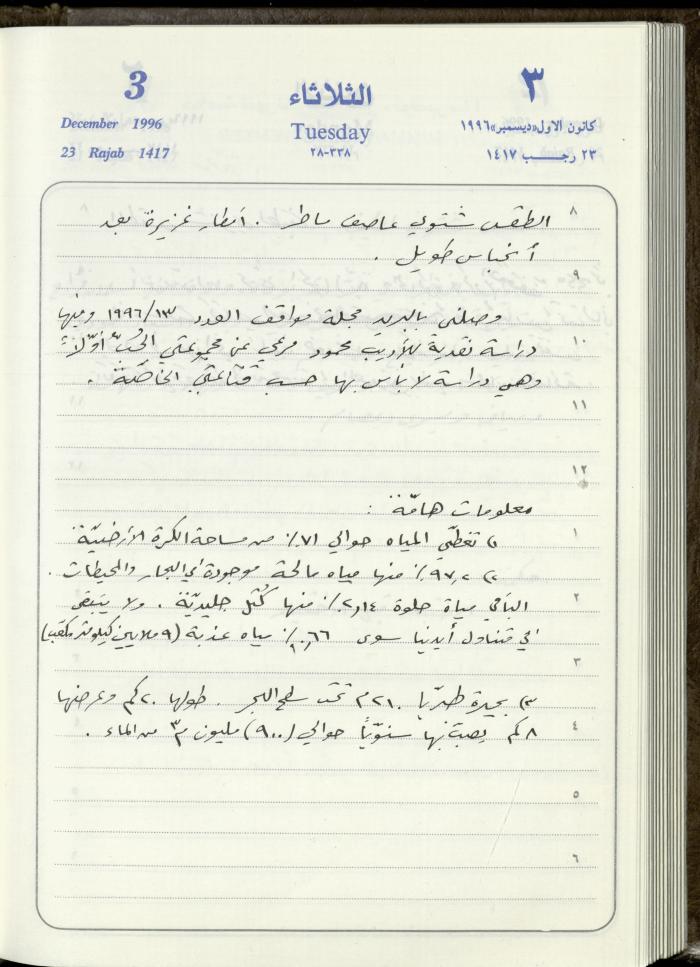 3
الثلاثاء
٣
December 1996
Tuesday
كانون الاول «ديسمبر» ١٩٩٦
23 Rajab 1417
٣٣٨-٢٨
٢٣ رجب ١٤١٧
٨
الطقس شتوي عاصف ماطر . أمطار غزيرة بعد
أنحباس طويل .
٩
وصلني بالبريد مجلة مواقف العدد ١٣/١٩٩٦ وفيها
١٠
دراسة نقدية للأديب محمود مرعي عن مجموعتي الحُبّ أوّلاً
وهي دراسة لا بأس بها حسب قناعتي الخاصّة .
١١
١٢
معلومات هامّة :
١
١) تغطّي المياه حوالي ٧١٪ من مساحة الكرة الأرضيّة
٢) ٩٧,٢٪ منها مياه مالحة موجودة في البحار والمحيطات .
٢
الباقي مياة حلوة ٢,١٤٪ منها كُتَل جليديّة . ولا يتبقى
في متناول أيدينا سوى ٠,٦٦٪ مياه عذبة (٩ ملايين كيلومتر مكعب)
٣
٣) بحيرة طبريّا ٢١٠م تحت سطح البحر . طولها ٢٠كم وعرضها
٤
٨ كم يصبّ بها سنويّاً حوالي (٩٠٠) مليون م٣ من الماء .
٥
٦